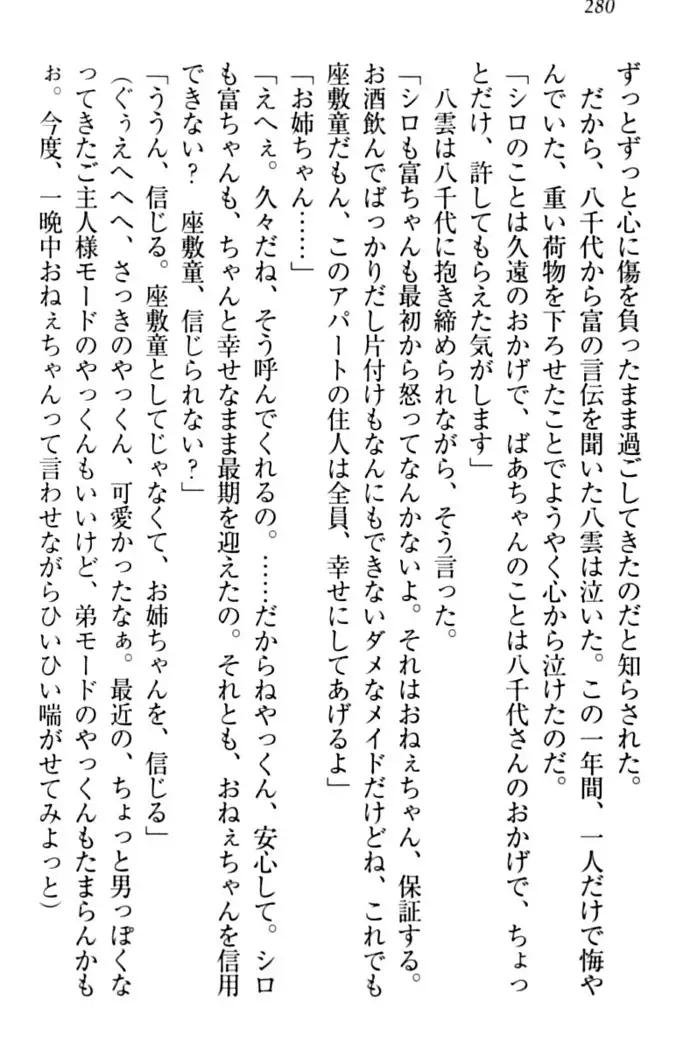 280
ずっとずっと心に傷を負ったまま過ごしてきたのだと知らされた。
　だから、八千代から富の言伝を聞いた八雲は泣いた。この一年間、一人だけで悔や
んでいた、重い荷物を下ろせたことでようやく心から泣けたのだ。
「シロのことは久遠のおかげで、ばあちゃんのことは八千代さんのおかげで、ちょっ
とだけ、許してもらえた気がします」
　八雲は八千代に抱き締められながら、そう言った。
「シロも富ちゃんも最初から怒ってなんかないよ。それはおねぇちゃん、保証する。
お酒飲んでばっかりだし片付けもなんにもできないダメなメイドだけどね、これでも
座敷童だもん、このアパートの住人は全員、幸せにしてあげるよ」
「お姉ちゃん……」
「えへぇ。久々だね、そう呼んでくれるの。……だからねやっくん、安心して。シロ
も富ちゃんも、ちゃんと幸せなまま最期を迎えたの。それとも、おねぇちゃんを信用
できない？　座敷童、信じられない？」
「ううん、信じる。座敷童としてじゃなくて、お姉ちゃんを、信じる」
（ぐぅえへへへ、さっきのやっくん、可愛かったなぁ。最近の、ちょっと男っぽくな
ってきたご主人様モードのやっくんもいいけど、弟モードのやっくんもたまらんかも
ぉ。今度、一晩中おねぇちゃんって言わせながらひいひい喘がせてみよっと）